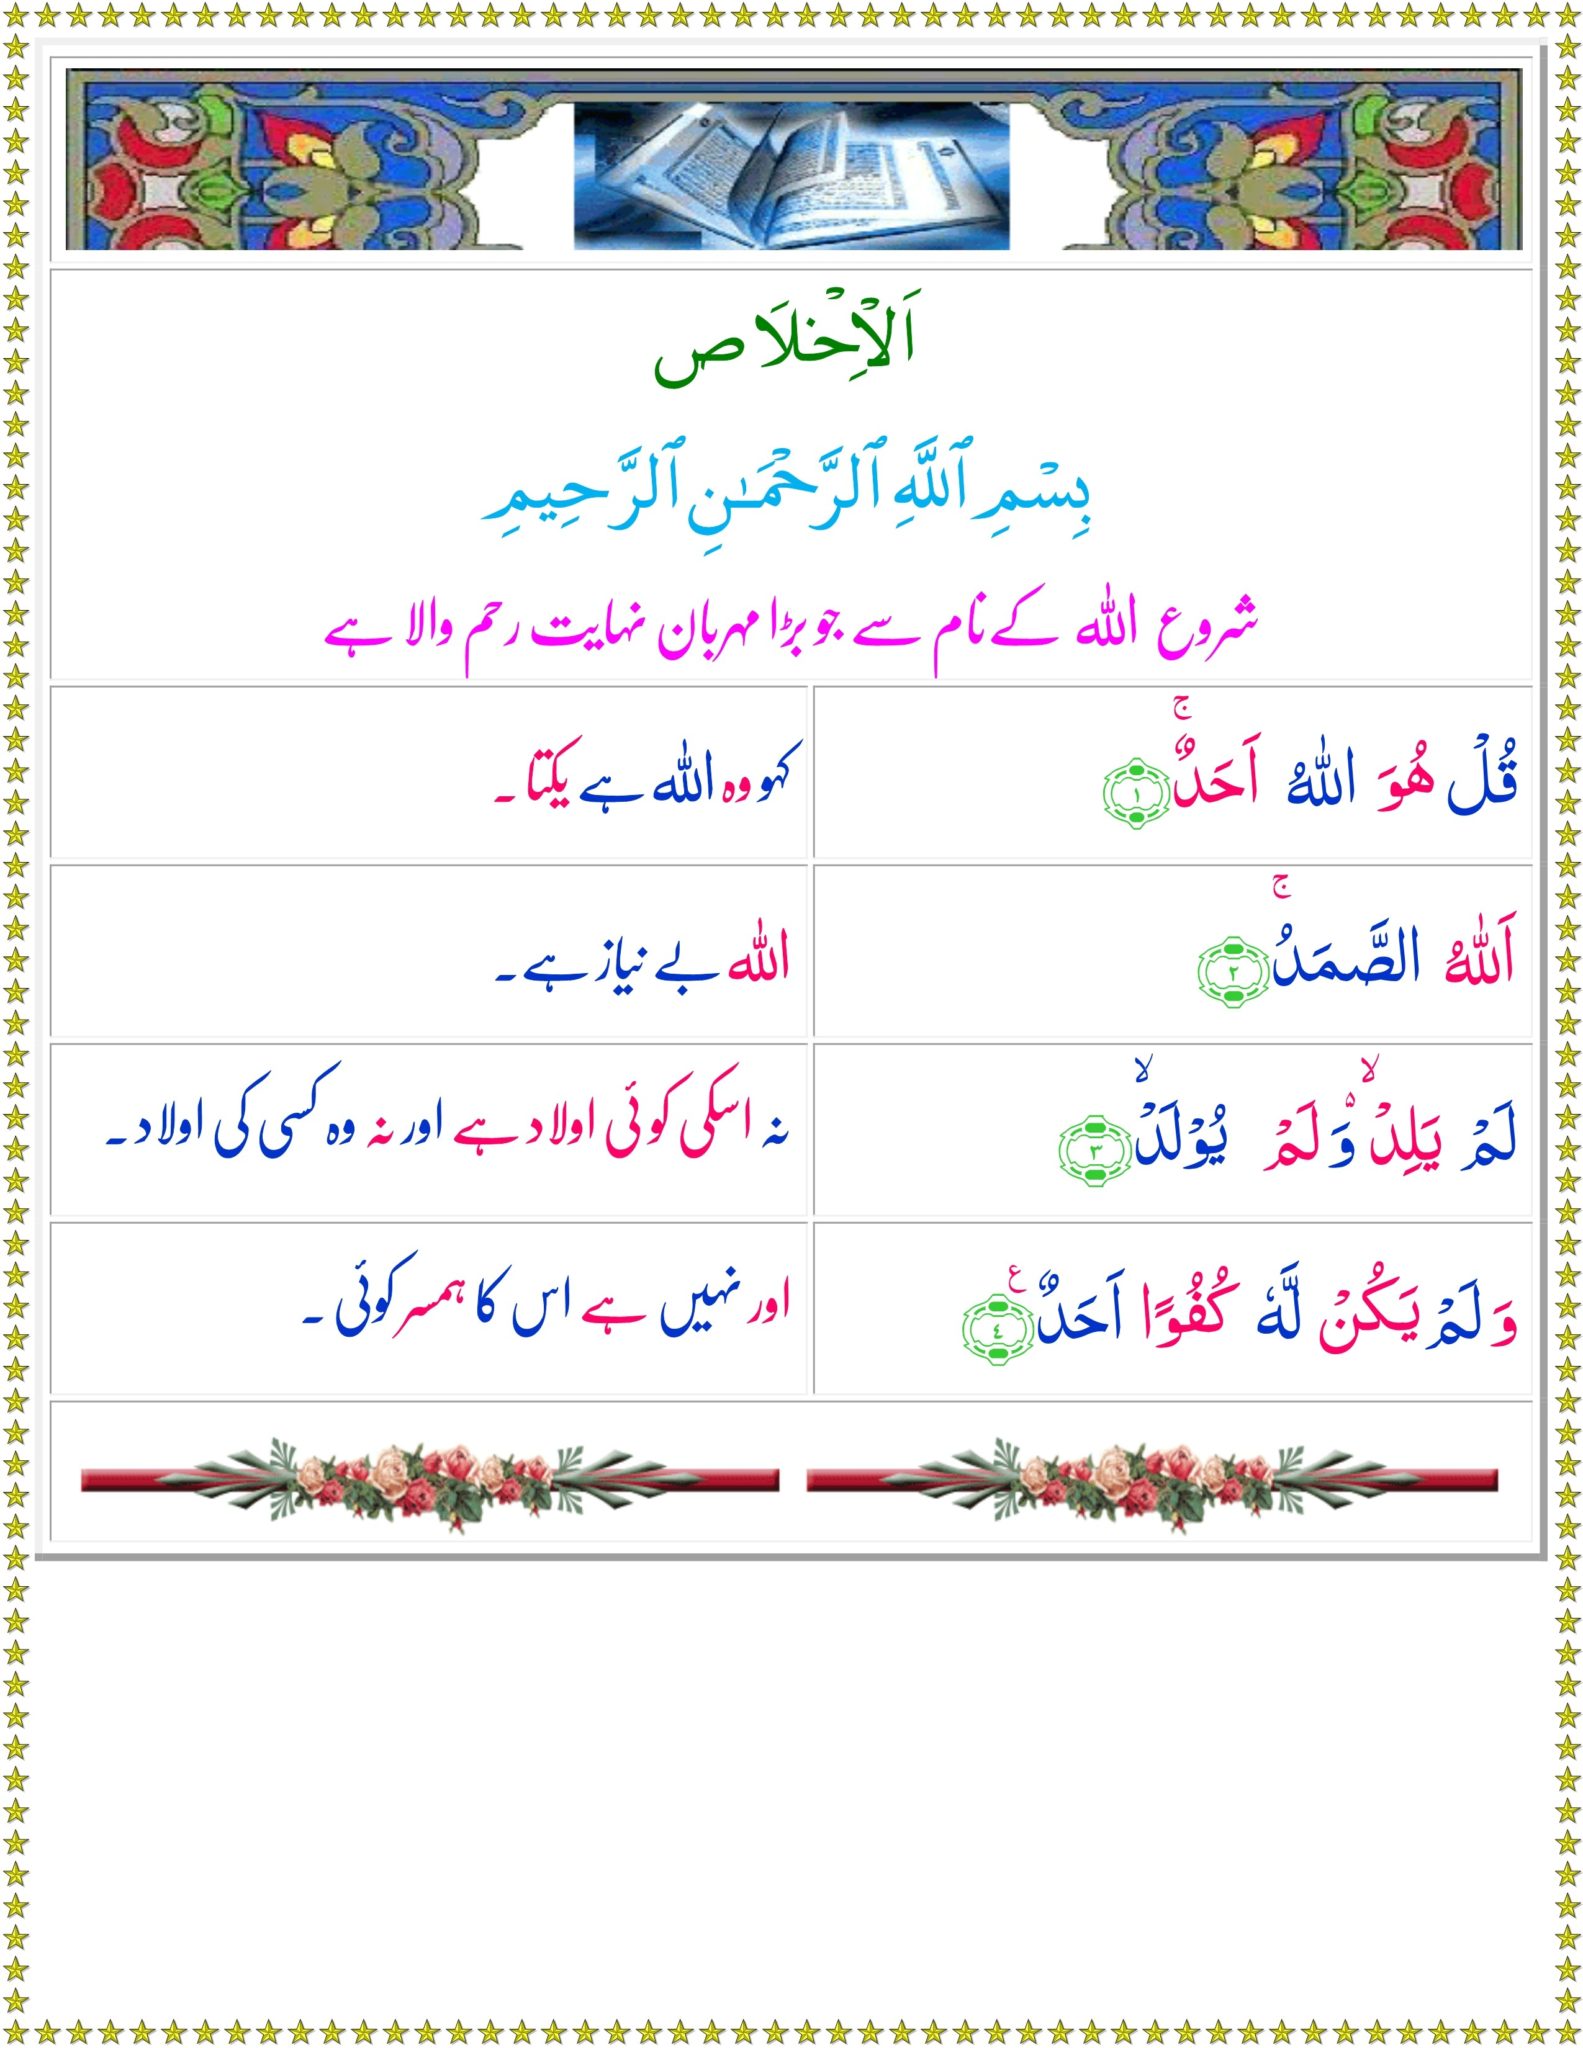 اَلْاِخْلَاص
بِسْمِ ٱللَّهِ ٱلرَّحْمَـٰنِ ٱلرَّحِيمِ
شروع اللہ کے نام سے جو بڑا مہربان نہایت رحم والا ہے
قُلْ هُوَ اللّٰهُ اَحَدٌۚ ۝١
کہو وہ اللہ ہے یکتا۔
اَللّٰهُ الصَّمَدُۚ ۝٢
اللہ بے نیاز ہے۔
لَمْ يَلِدْ ۙ وَّلَمْ يُوْلَدْ ۙ ۝٣
نہ اسکی کوئی اولاد ہے اور نہ وہ کسی کی اولاد۔
وَلَمْ يَكُنْ لَّهٗ كُفُوًا اَحَدٌ ع ۝٤
اور نہیں ہے اس کا ہمسر کوئی۔